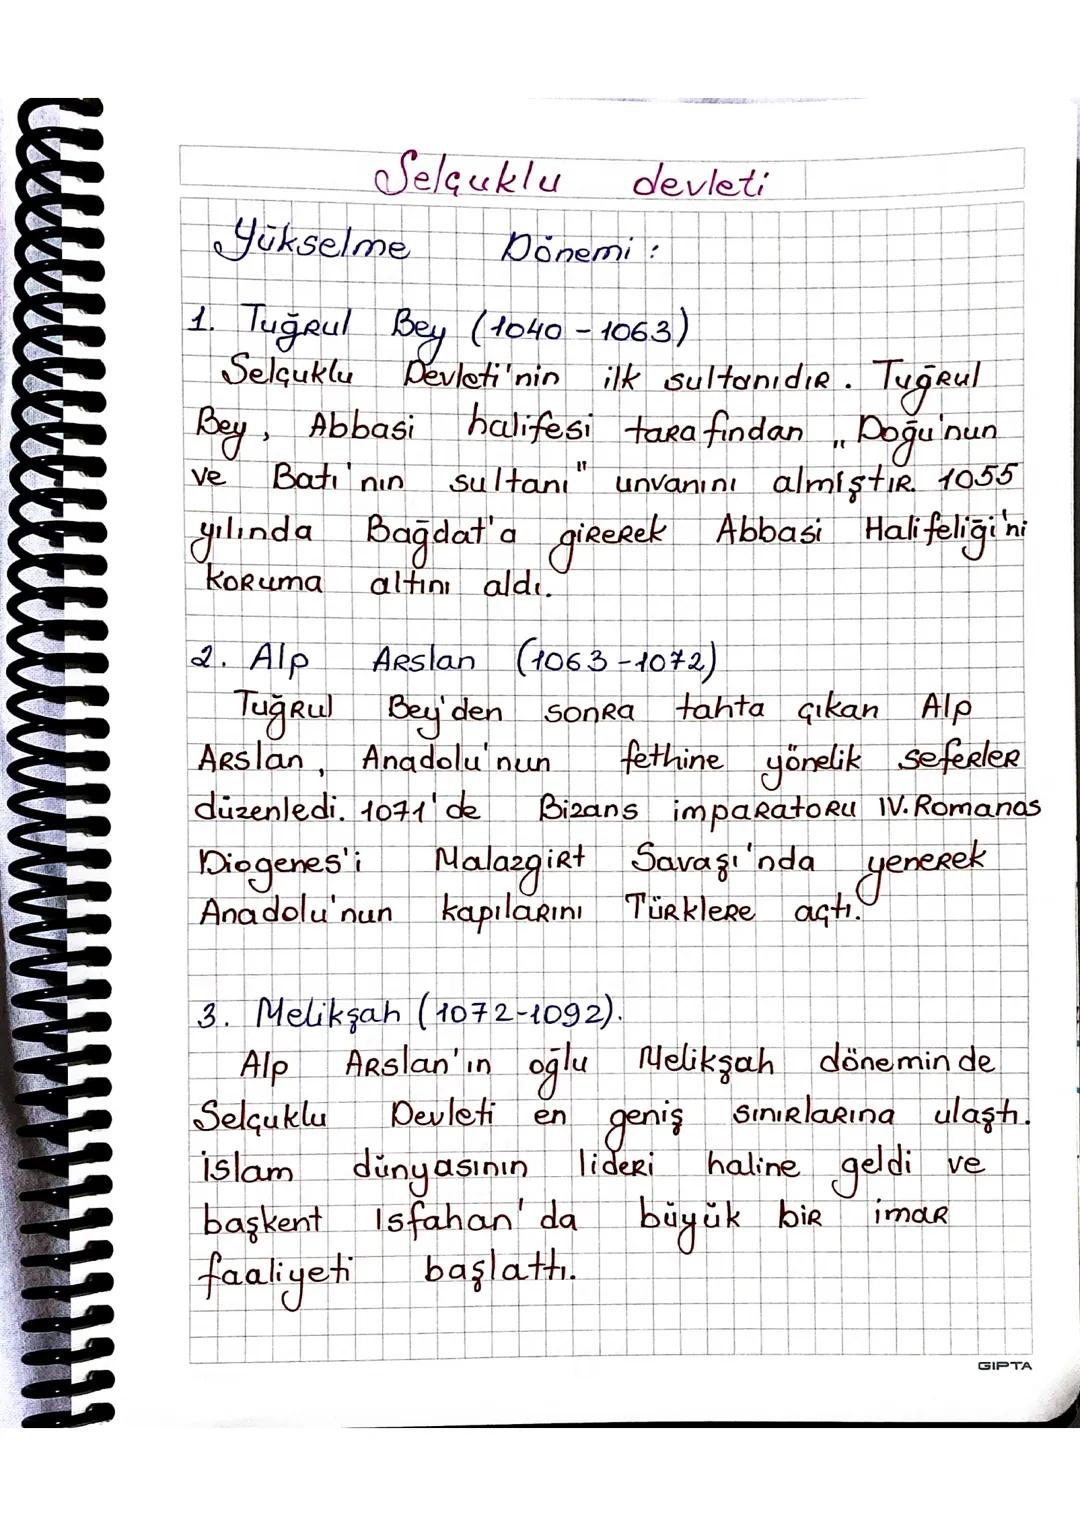 Selçuklu devleti
Yükselme Dönemi :
1. Tuğrul Bey (1040 - 1063)
Selçuklu Devleti'nin ilk sultanıdır. Tuğrul
Bey, Abbasi halifesi tarafından „Doğu'nun
ve Batı'nın sultanı" unvanını almıştır. 1055
yılında Bağdat'a girerek Abbasi Halifeliği'ni
koruma altını aldı.
2. Alp Arslan (1063-1072)
Tuğrul Bey'den sonra tahta çıkan Alp
Arslan, Anadolu'nun fethine yönelik seferler
düzenledi. 1071'de Bizans imparatoru IV. Romanos
Diogenes'i Malazgirt Savaşı'nda yenerek
Anadolu'nun kapılarını Türklere açtı.
3. Melikşah (1072-1092).
Alp Arslan'ın oğlu Melikşah döneminde
Selçuklu Devleti en geniş sınırlarına ulaştı.
islam dünyasının lideri haline geldi ve
başkent Isfahan'da büyük bir imar
faaliyeti başlattı.
GIPTA